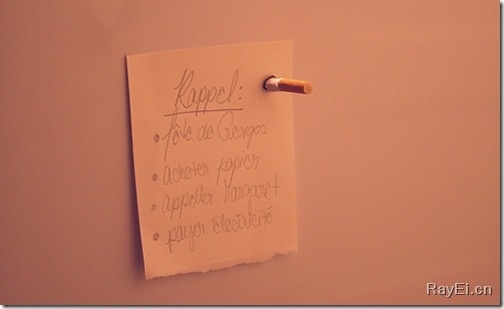 Rappel:
• fête de Georges
• acheter papier
• appeller Margaret
• payer électricité
RayEi.cn